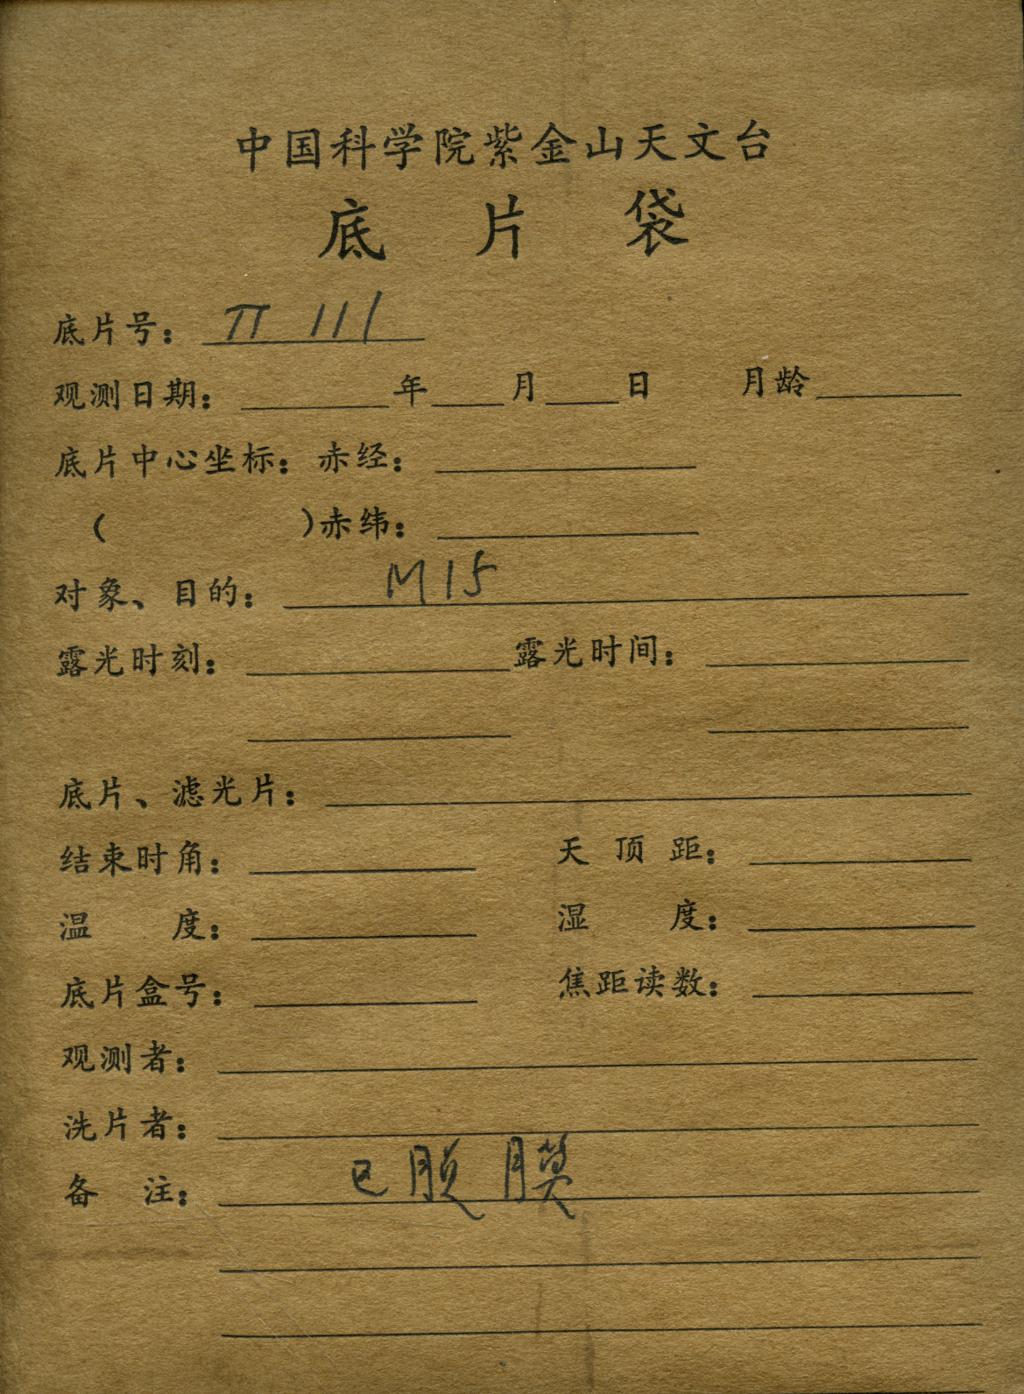 中国科学院紫金山天文台
底片袋
底片号: π 111
观测日期: ______年____月____日 月龄______
底片中心坐标: 赤经: ______
( )赤纬: ______
对象、目的: M15
露光时刻: ______露光时间: ______
底片、滤光片: ______
结束时角: ______ 天顶距: ______
温度: ______ 湿度: ______
底片盒号: ______ 焦距读数: ______
观测者: ______
洗片者: ______
备注: 已脱膜